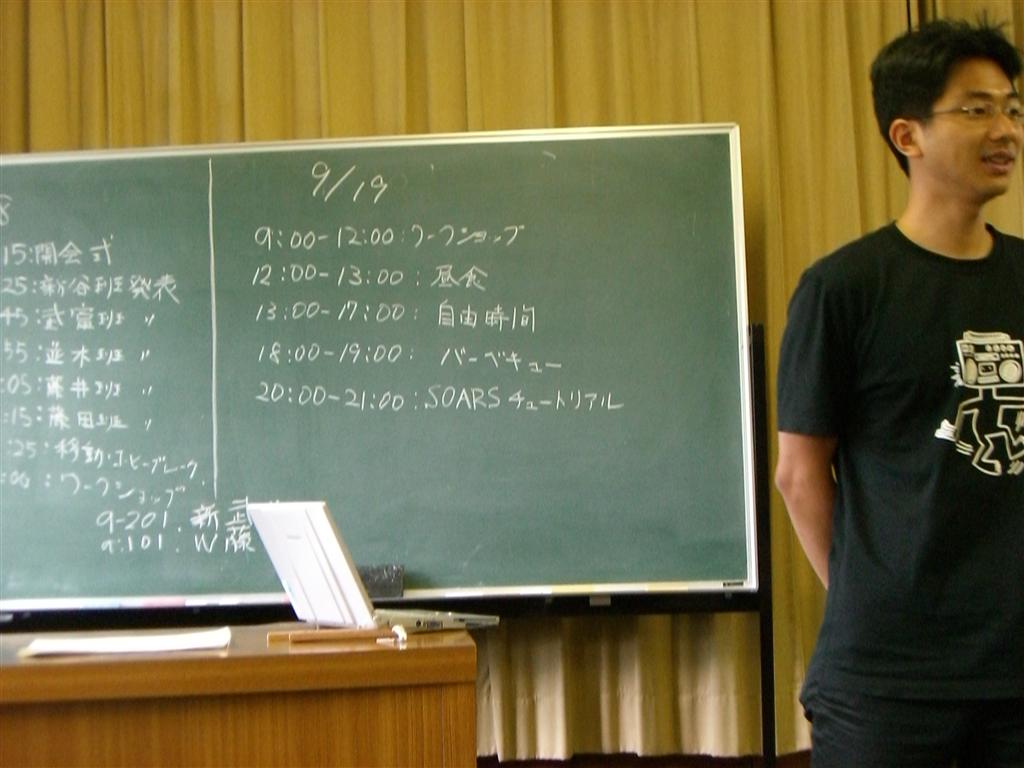 8
15:開会式
25:新谷班発表
45:武冨班 〃
55:並木班 〃
:05:藤井班 〃
:15:藤田班 〃
:25:移動・コーヒーブレーク
:00:ワークショップ
9-201.新 武
9-101.W 藤
9/19
9:00-12:00:ワークショップ
12:00-13:00:昼食
13:00-17:00:自由時間
18:00-19:00: バーベキュー
20:00-21:00:SOARSチュートリアル